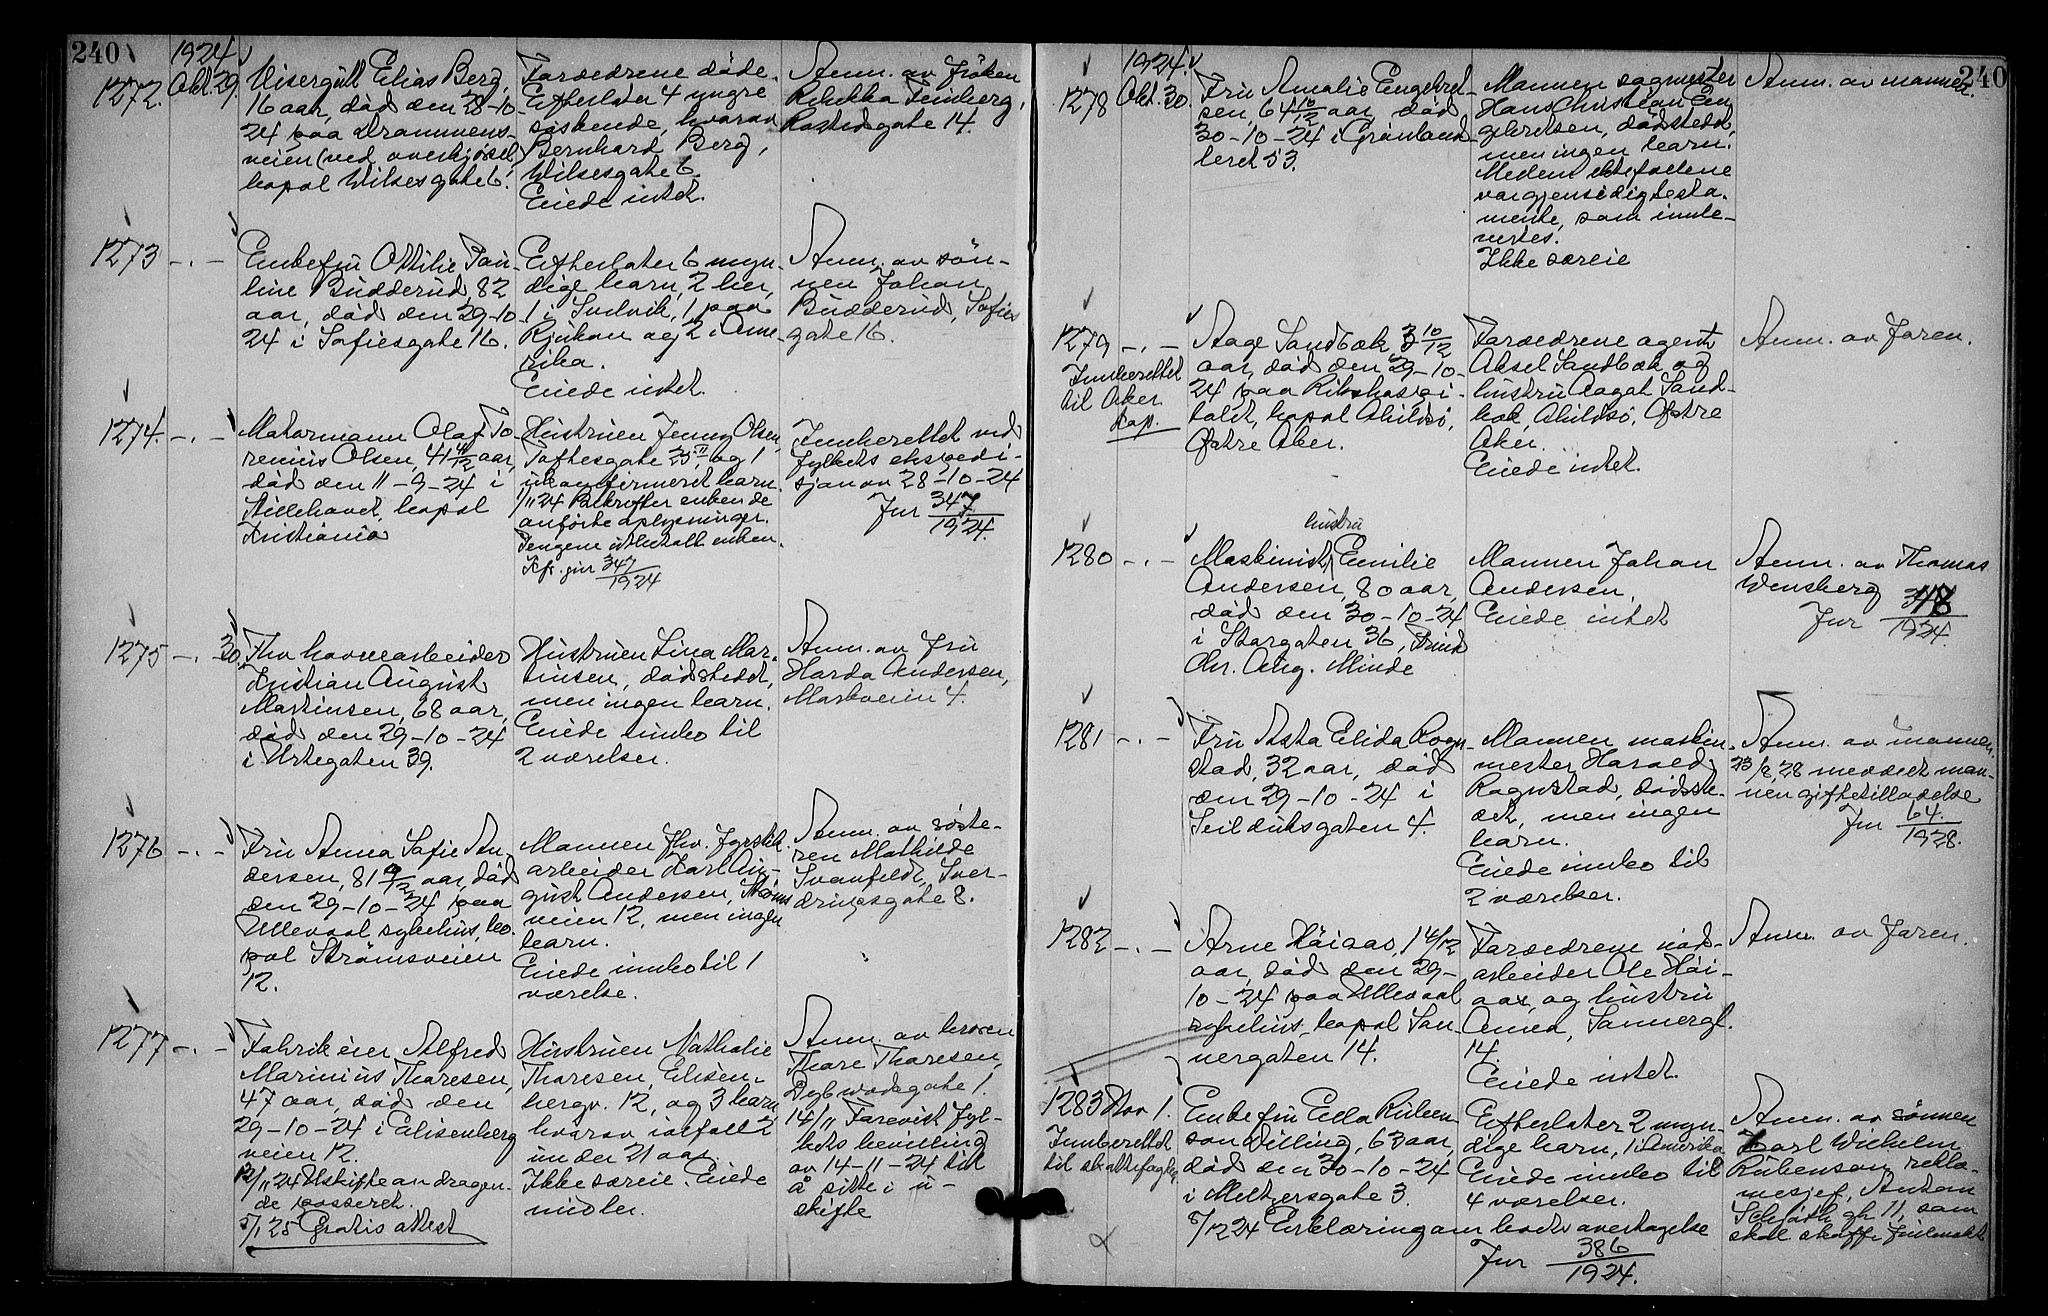 240
1924
1272. Okt. 29.
Visergutt Elias Berg,
16 aar, död den 28-10-
24 paa Drammens-
veien (ved overkjørsel)
bopæl Wilsesgate 6.
Forældrene döde.
Efterlater 4 yngre
söskende, hvorav
Bernhard Berg,
Wilsesgate 6.
Eiede intet.
Anm. av fröken
Rebekka Feinberg,
Rostedsgate 14.
1273 -.-
Enkefru Ottilie Pau-
line Budderud, 82
aar, död den 29-10-
24 i Sofiesgate 16.
Efterlater 6 myn-
dige barn, 2 her,
1 i Svelvik, 1 paa
Rjukan og 2 i Ame-
rika.
Eiede intet.
Anm. av sön-
nen Johan
Budderud, Sofies
gate 16.
1274. -.-
Motormann Olaf To-
renius Olsen, 41 11/12 aar,
död den 11-9-24 i
Stillehavet, bopæl
Kristiania
Hustruen Jenny Olsen,
Toftesgate 25 II og 1
ukonfirmeret barn.
1/11 24 Bekrefter enken de
anførte oplysninger.
Pengene utbetalt enken.
Kfr. jnr 347/1924
Innberettet ved
fylkets ekspedi-
sjon av 28-10-24
Jnr 347/1924.
1275 -.- 30.
Fhv havnearbeider
Kristian August
Martinsen, 68 aar,
död den 29-10-24
i Urtegaten 39.
Hustruen Lina Mar-
tinsen, dödstedet,
men ingen barn.
Eiede innbo til
2 værelser.
Anm. av Fru
Harda Andersen,
Markveien 4.
1276 -.-
Fru Anna Sofie An-
dersen, 81 9/12 aar, död
den 29-10-24 paa
Ullevaal sykehus, bo-
pæl Strömsveien
12.
Mannen fhv. fyrstik-
arbeider Karl Au-
gust Andersen, Ströms
veien 12, men ingen
barn.
Eiede innbo til 1
værelse.
Anm. av söste-
ren Mathilde
Svanfeldt, Sver-
dringsgate 8.
1277 -.-
Fabrikeier Alfred
Marinius Thoresen,
47 aar, död den
29-10-24 i Elisenberg
veien 12.
12/11 24 Uskifteandragen-
de passeret.
5/1 25 Gratis attest
Hustruen Nathalie
Thoresen, Elisen-
bergv. 12, og 3 barn
hvorav ialfall 2
under 21 aar.
Ikke særeie. Eiede
midler.
Anm. av broren
Thore Thoresen,
Dybwadsgate 1.
14/11 Forevist fyl-
kets bevilling
av 14-11-24 til
å sitte i u-
skifte
240
1924.
1278 Okt. 30.
Fru Amalie Engebret-
sen, 64 10/12 aar, död
30-10-24 i Grönland
leret 53.
Mannen sagmester
Hans Christian En-
gebretsen, dödstedet,
men ingen barn.
Mellem ektefællene
var gjensidig testa-
mente, som innle-
vertes.
Ikke særeie
Anm. av mannen.
1279 -.-
Innberettet
til Aker
Kap.
Aage Sandbæk 3 10/12
aar, död den 29-10-
24 paa Rikshospi-
talet, bopæl Abildsö,
Östre Aker.
Forældrene agent
Aksel Sandbæk og
hustru Aagot Sand-
bæk, Abildsö, Östre
Aker.
Eiede intet.
Anm. av Faren.
1280 -.-
hustru
Maskinist Emilie
Andersen, 80 aar,
död den 30-10-24
i Storgaten 36, Fruid
Chr. Aug. Minde
Mannen Johan
Andersen.
Eiede intet
Anm. av Thomas
Wensberg
Jnr 348/1924.
1281 -.-
Fru Asta Elida Rogn-
stad, 32 aar, död
den 29-10-24 i
Seilduksgaten 4.
Mannen maskin-
mester Harald
Rognstad, dödste-
det, men ingen
barn.
Eiede innbo til
2 værelser.
Anm. av mannen.
23/8 28 meddelt man-
nen giftetilladelse
Jnr 64/1928.
1282 -.-
Arne Höiaas, 1 4/12
aar, död den 29-
10-24 paa Ullevaal
sykehus, bopæl San-
nergaten 14.
Forældrene
arbeider Ole Höi-
aas, og hustru
Sannergt.
14.
Eiede intet.
Anm. av Faren.
1283 Nov 1.
Innberettet
til skattefogden
Enkefru Ella Ruben-
son Willing, 63 aar,
död den 30-10-24
i Meltzersgate 3.
5/12 24 Erklæring om boets overtagelse
Jnr 386/1924.
Efterlater 2 myn-
dige barn, 1 i Amerika
Eiede innbo til
4 værelser.
Anm. av sönnen
Karl Wilhelm
Rubenson, rekla-
mesjef, Anton
Schjöths gt. 11, som
skal skaffe fullmakt